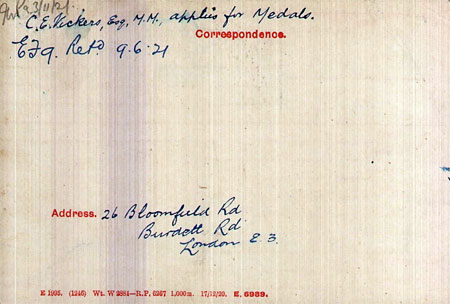 C.E. Vickers, Esq, M.M., applies for Medals.
Correspondence.
EF9. Retd 9.6.21
Address. 26 Bloomfield Rd
Burdett Rd
London E.3.
E 1935. (1246) Wt. W 2884—R.P. 6267 1,000m. 17/12/20. E. 6959.